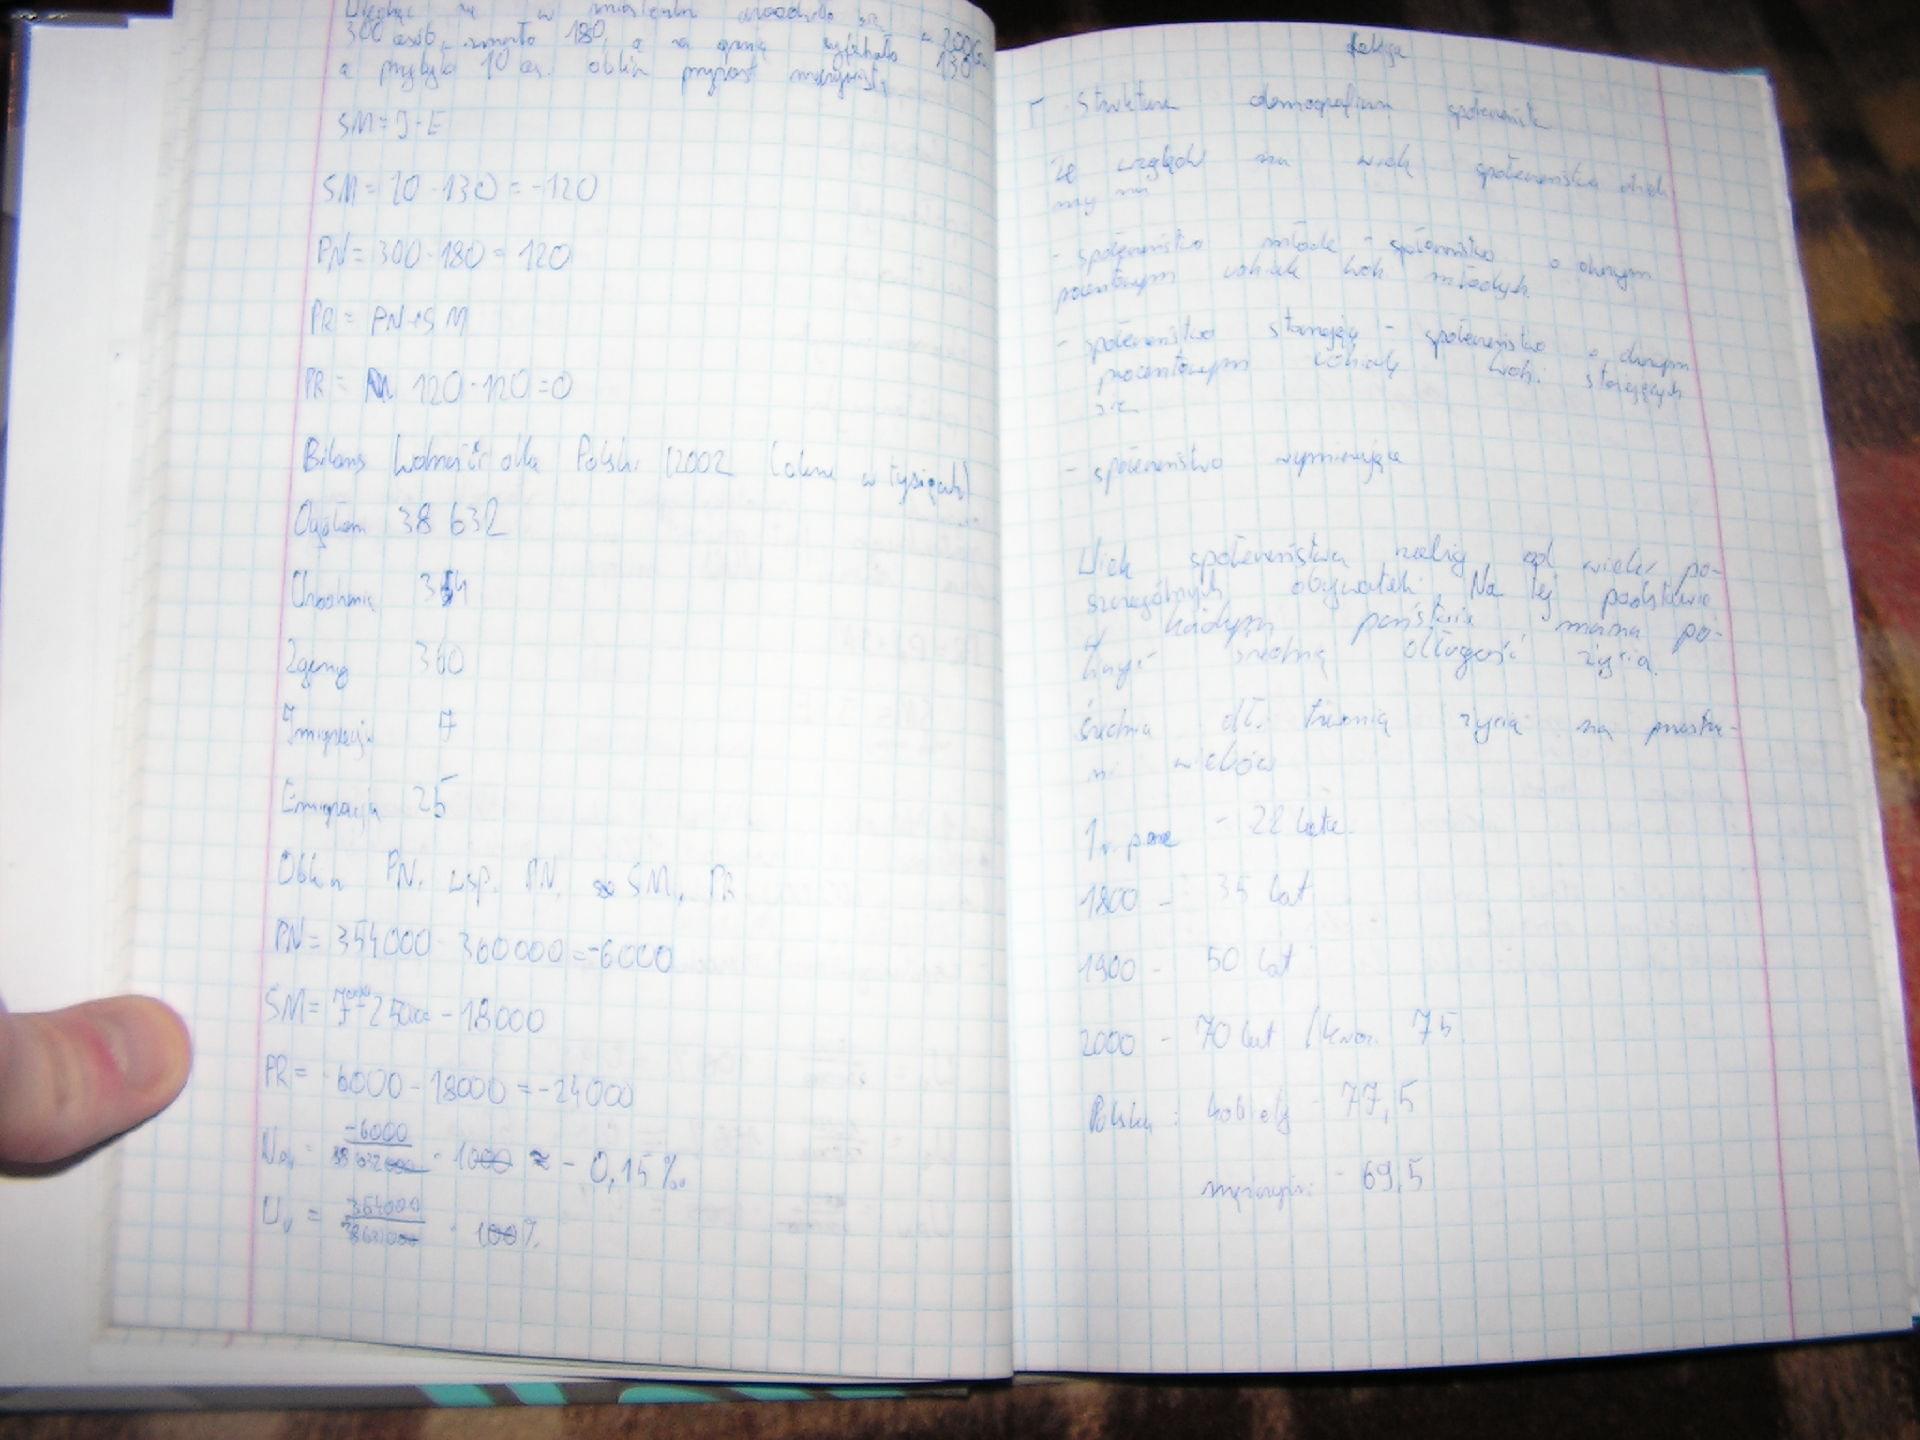 w miasteczku urodziło się w 200
300 osób, zmarło 180, a za granicę wyjechało 130
a przybyło 10 os. oblicz przyrost rzeczywisty
SM = J - E
SM = 10 - 130 = -120
PN = 300 - 180 = 120
PR = PN + SM
PR = 120 - 120 = 0
Bilans ludności dla Polski (2002 (dane w tysiącach)
Ogółem 38 632
Urodzenia 354
Zgony 360
Imigracja 7
Emigracja 25
Oblicz PN, wsp. PN, SM, PR
PN = 354000 - 360000 = -6000
SM = 7000 - 25000 = -18000
PR = -6000 - 18000 = -24000
-6000
38 632000 · 1000 ≈ - 0,15 ‰
354000
38632000 · 100%
Lekcja
Struktura demograficzna społeczeństw
Ze względu na wiek społeczeństwa dzieli-
my na
- społeczeństwo młode - społeczeństwo o dużym
procentowym udziale ludzi młodych
- społeczeństwo starzejące - społeczeństwo o dużym
procentowym udziale ludzi starzejących
się
- społeczeństwo wymierające
Wiek społeczeństwa zależy od wieku po-
szczególnych obywateli. Na tej podstawie
w każdym państwie można po-
liczyć średnią długość życia.
Średnia dł. trwania życia na przestrze-
ni wieków
1 r. p.n.e - 22 lata
1800 - 35 lat
1900 - 50 lat
2000 - 70 lat / 75
Polska: kobiety - 77,5
mężczyźni - 69,5